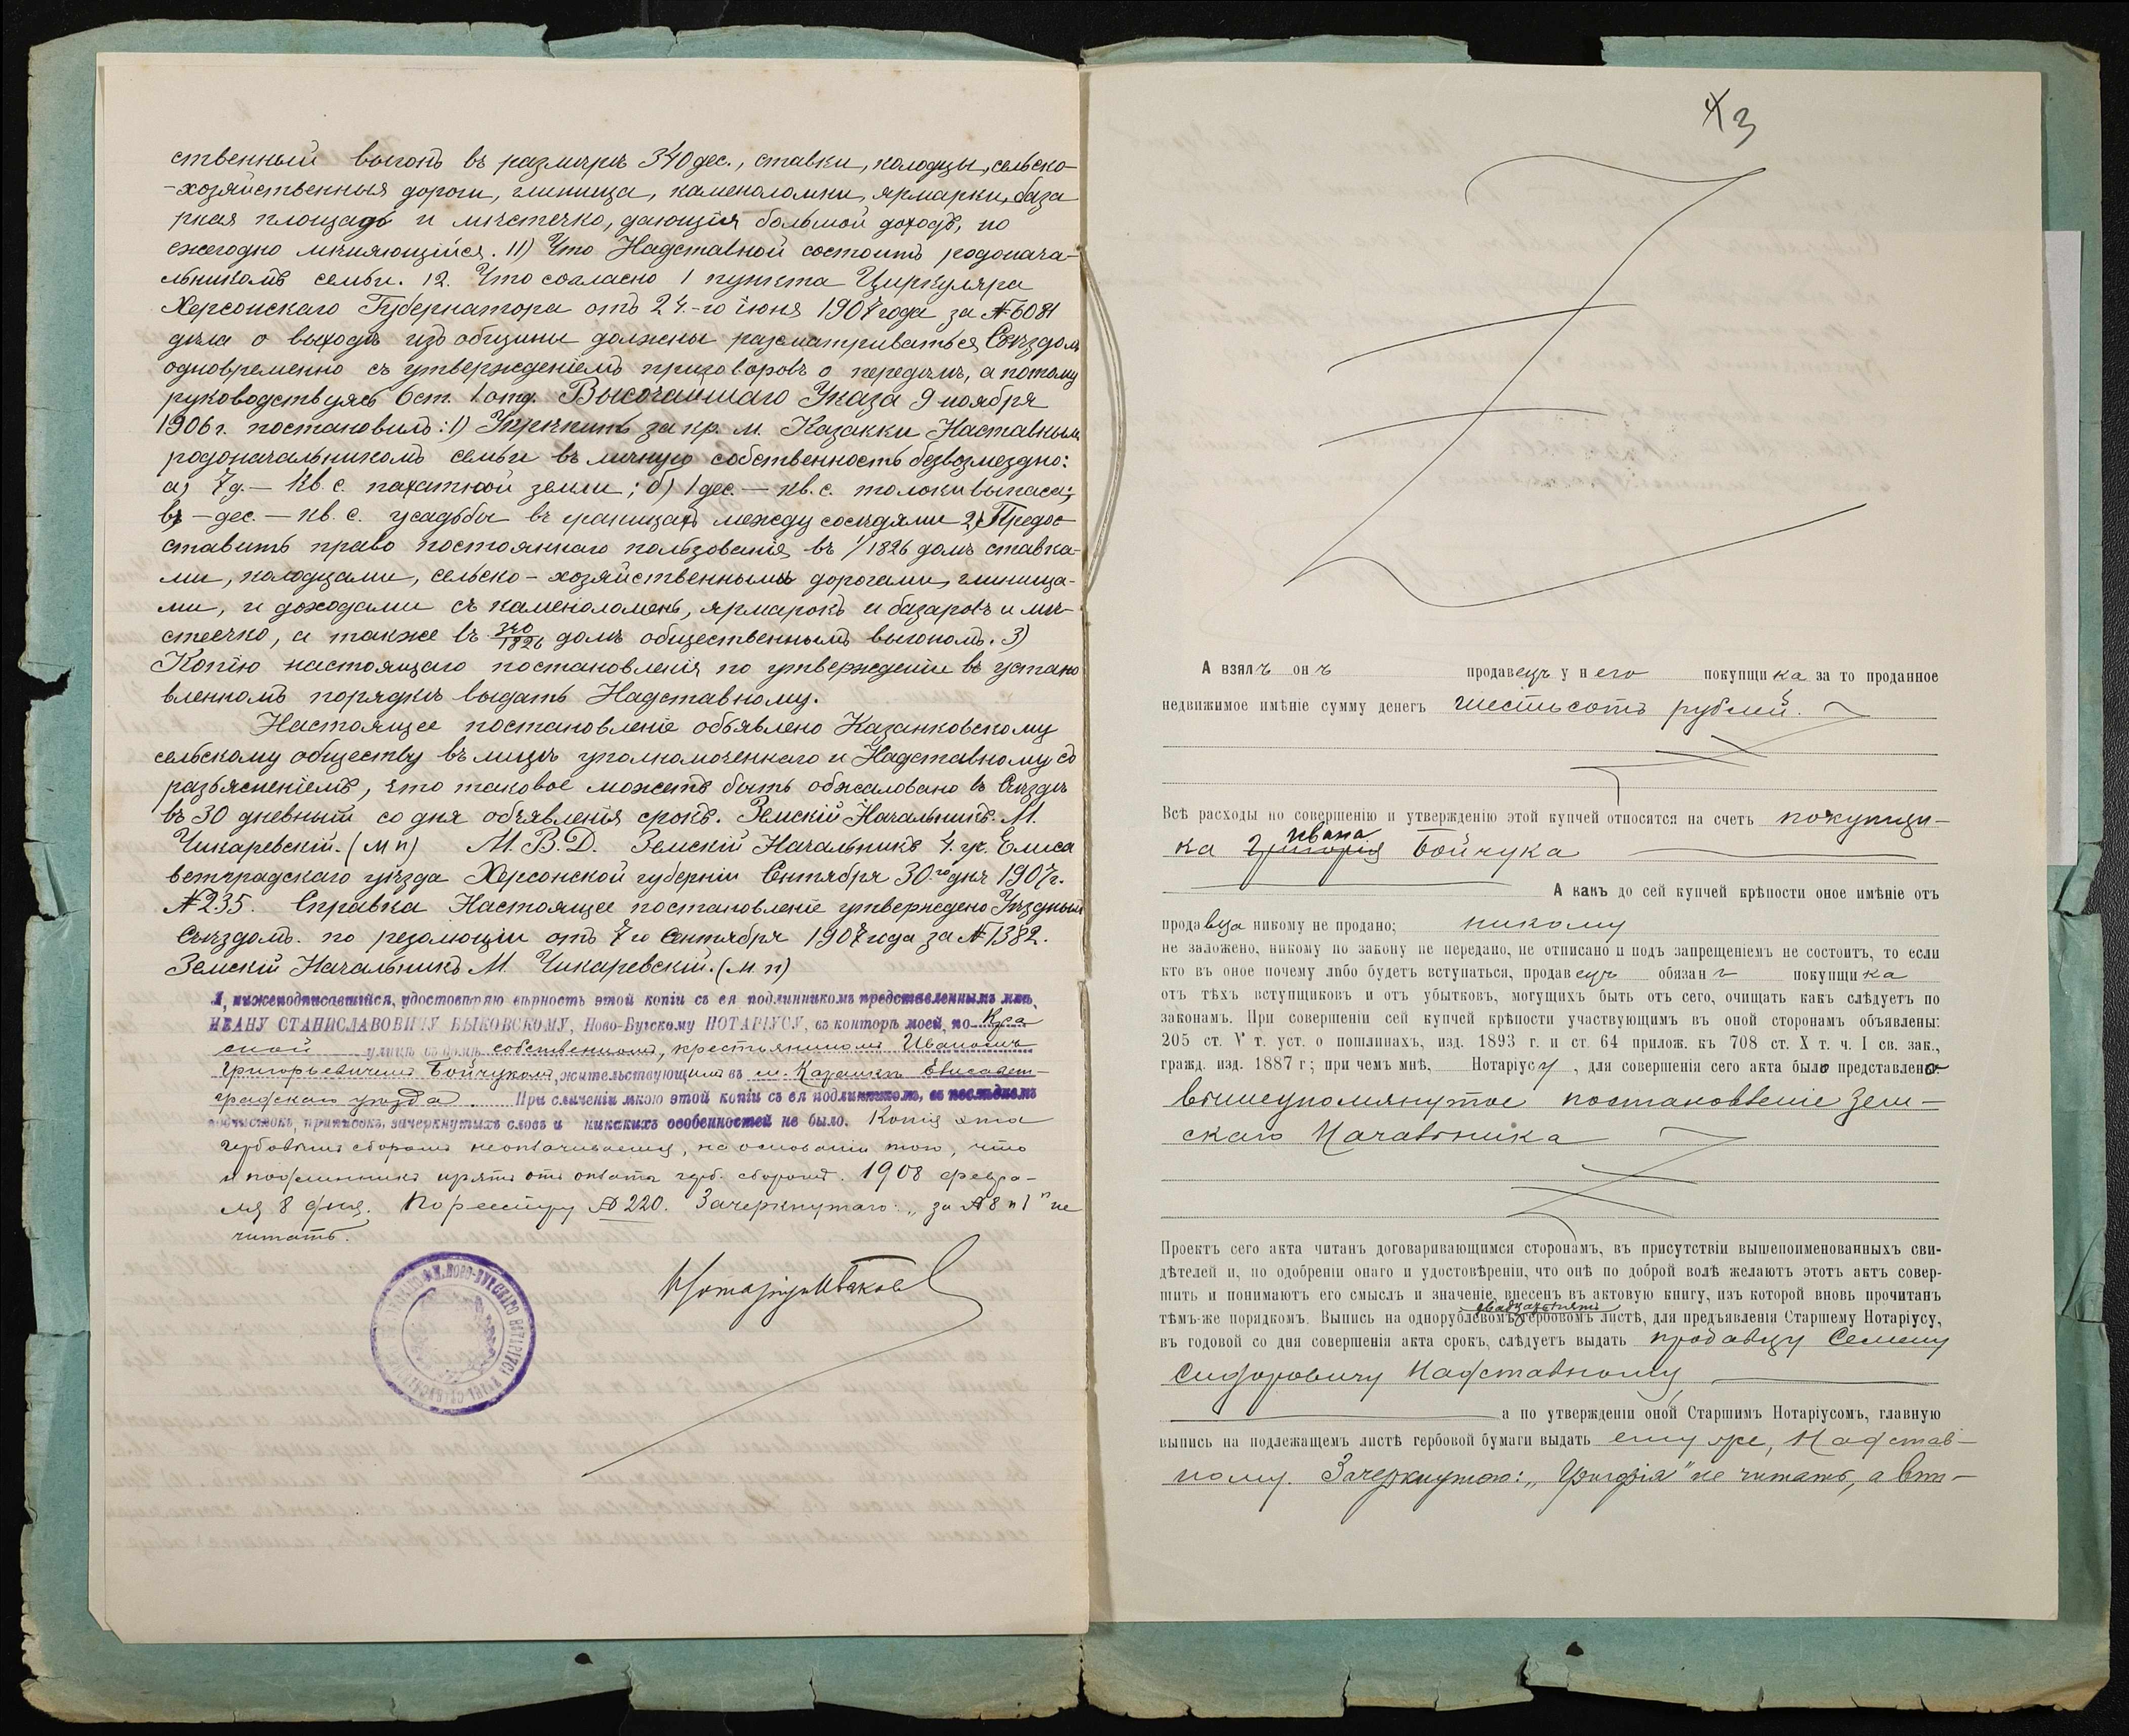 ственный выгонъ въ размѣрѣ 340 дес., ставки, колодцы, сельско-
-хозяйственныя дороги, глинища, каменоломни, ярмарки, база
рная площадь и мѣстечко, дающія большой доходъ, но
ежегодно мѣняющійся. 11) Что Надставной состоитъ родонача-
льникомъ семьи. 12. Что согласно 1 пункта Циркуляра
Херсонскаго Губернатора отъ 24-го іюня 1907 года за № 6081
дѣла о выходѣ изъ общины должны разсматриваться Съѣздомъ
одновременно съ утвержденіемъ приговоровъ о передѣлѣ, а потому
руководствуясь 6 ст. 1 отд. Высочайшаго Указа 9 ноября
1906 г. постановилъ: 1) Укрѣпить за кр. м. Казанки Наставнымъ
родоначальникомъ семьи въ личную собственность безвозмездно:
а) 7 д. — кв. с. пахатной земли; б) 1 дес. — кв. с. толоки выпаса;
в) — дес. — кв. с. усадьбы въ границахъ между сосѣдями 2) Предос-
ставить право постояннаго пользованія въ 1/1826 долѣ ставка-
ми, колодцами, сельско-хозяйственными дорогами, глинища-
ми, и доходами съ каменоломень, ярмарокъ и базаровъ и мѣ-
стечко, а также въ 340/1826 долѣ общественнымъ выгономъ. 3)
Копію настоящаго постановленія по утвержденіи въ устано
вленномъ порядкѣ выдать Надставному.
Настоящее постановленіе объявлено Казанковскому
сельскому обществу въ лицѣ уполномоченнаго и Надставному со
разъясненіемъ, что таковое можетъ быть обжаловано въ Съѣздъ
въ 30 дневный со дня объявленія срокъ. Земскій Начальникъ М.
Чикаревскій. (м п) М. В. Д. Земскій Начальникъ 4. уч. Елиса
ветградскаго уѣзда Херсонской губерніи Сентября 30.го дня 1907 г.
№ 235. Справка Настоящее постановленіе утверждено Уѣзднымъ
Съѣздомъ. по резолюціи отъ 7 го Сентября 1907 года за № 1382.
Земскій Начальникъ М. Чикаревскій. (м. п)
Я, нижеподписавшійся, удостовѣряю вѣрность этой копіи съ ея подлинникомъ представленнымъ мнѣ,
ИВАНУ СТАНИСЛАВОВИЧУ БЫКОВСКОМУ, Ново-Бугскому НОТАРІУСУ, въ конторѣ моей, по
улицѣ въ домѣ собственномъ, крестьяниномъ Иваномъ
Григорьевичемъ Бойчукомъ, жительствующимъ въ м. Казанкѣ Елисавет-
градскаго уѣзда. При сличеніи мною этой копіи съ ея подлинникомъ, въ послѣднемъ
подчистокъ, приписокъ, зачеркнутыхъ словъ и никакихъ особенностей не было. Копія эта
гербовымъ сборомъ неоплачивается, на основаніи того, что
и подлинникъ изъятъ отъ оплаты герб. сборомъ. 1908 февра-
ля 8 дня. По реестру № 220. Зачеркнутаго: „за № 8 п 1" не
читать.
Нотаріусъ И Быковскій
А взялъ онъ продавецъ у него покупщика за то проданное
недвижимое имѣніе сумму денегъ шестьсотъ рублей.
Всѣ расходы по совершенію и утвержденію этой купчей относятся на счетъ покупщи-
Ивана
ка Григорія Бойчука
А какъ до сей купчей крѣпости оное имѣніе отъ
продавца никому не продано; никому
не заложено, никому по закону не передано, не отписано и подъ запрещеніемъ не состоитъ, то если
кто въ оное почему либо будетъ вступаться, продавецъ обязанъ покупщика
отъ тѣхъ вступщиковъ и отъ убытковъ, могущихъ быть отъ сего, очищать какъ слѣдуетъ по
законамъ. При совершеніи сей купчей крѣпости участвующимъ въ оной сторонамъ объявлены:
205 ст. V т. уст. о пошлинахъ, изд. 1893 г. и ст. 64 прилож. къ 708 ст. X т. ч. I св. зак.,
гражд. изд. 1887 г; при чемъ мнѣ, Нотаріусу, для совершенія сего акта было представлено:
вышеупомянутое постановленіе Зем-
скаго Начальника
Проектъ сего акта читанъ договаривающимся сторонамъ, въ присутствіи вышепоименованныхъ сви-
дѣтелей и, по одобреніи онаго и удостовѣреніи, что онѣ по доброй волѣ желаютъ этотъ актъ совер-
шить и понимаютъ его смыслъ и значеніе, внесенъ въ актовую книгу, изъ которой вновь прочитанъ
тѣмъ-же порядкомъ. Выпись на однорублевомъ гербовомъ листѣ, для предъявленія Старшему Нотаріусу,
въ годовой со дня совершенія акта срокъ, слѣдуетъ выдать продавцу Семену
Сидоровичу Надставному
а по утвержденіи оной Старшимъ Нотаріусомъ, главную
выпись на подлежащемъ листѣ гербовой бумаги выдать ему же, Надстав-
ному. Зачеркнутое: „Григорія" не читать, а впи-